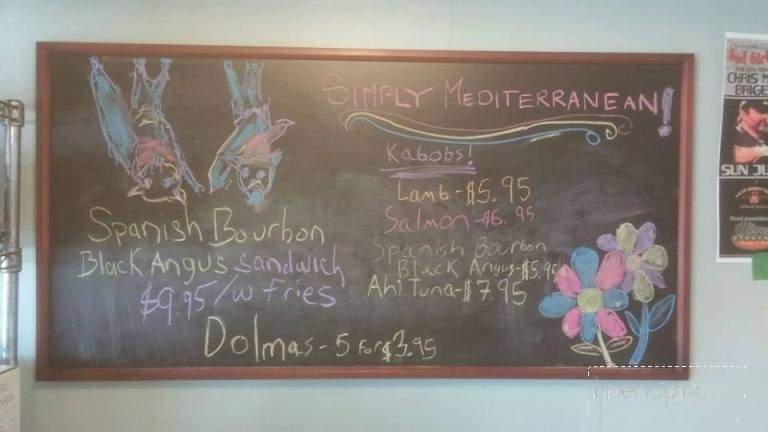 SIMPLY MEDITERRANEAN!
Kabobs!
Lamb-$5.95
Salmon-$6.95
Spanish Bourbon
Black Angus-$5.95
Ahi Tuna-$7.95
Spanish Bourbon
Black Angus sandwich
$9.95/w fries
Dolmas-5 for $3.95
CHRIS M
BRIGE
SUN JU
menupix